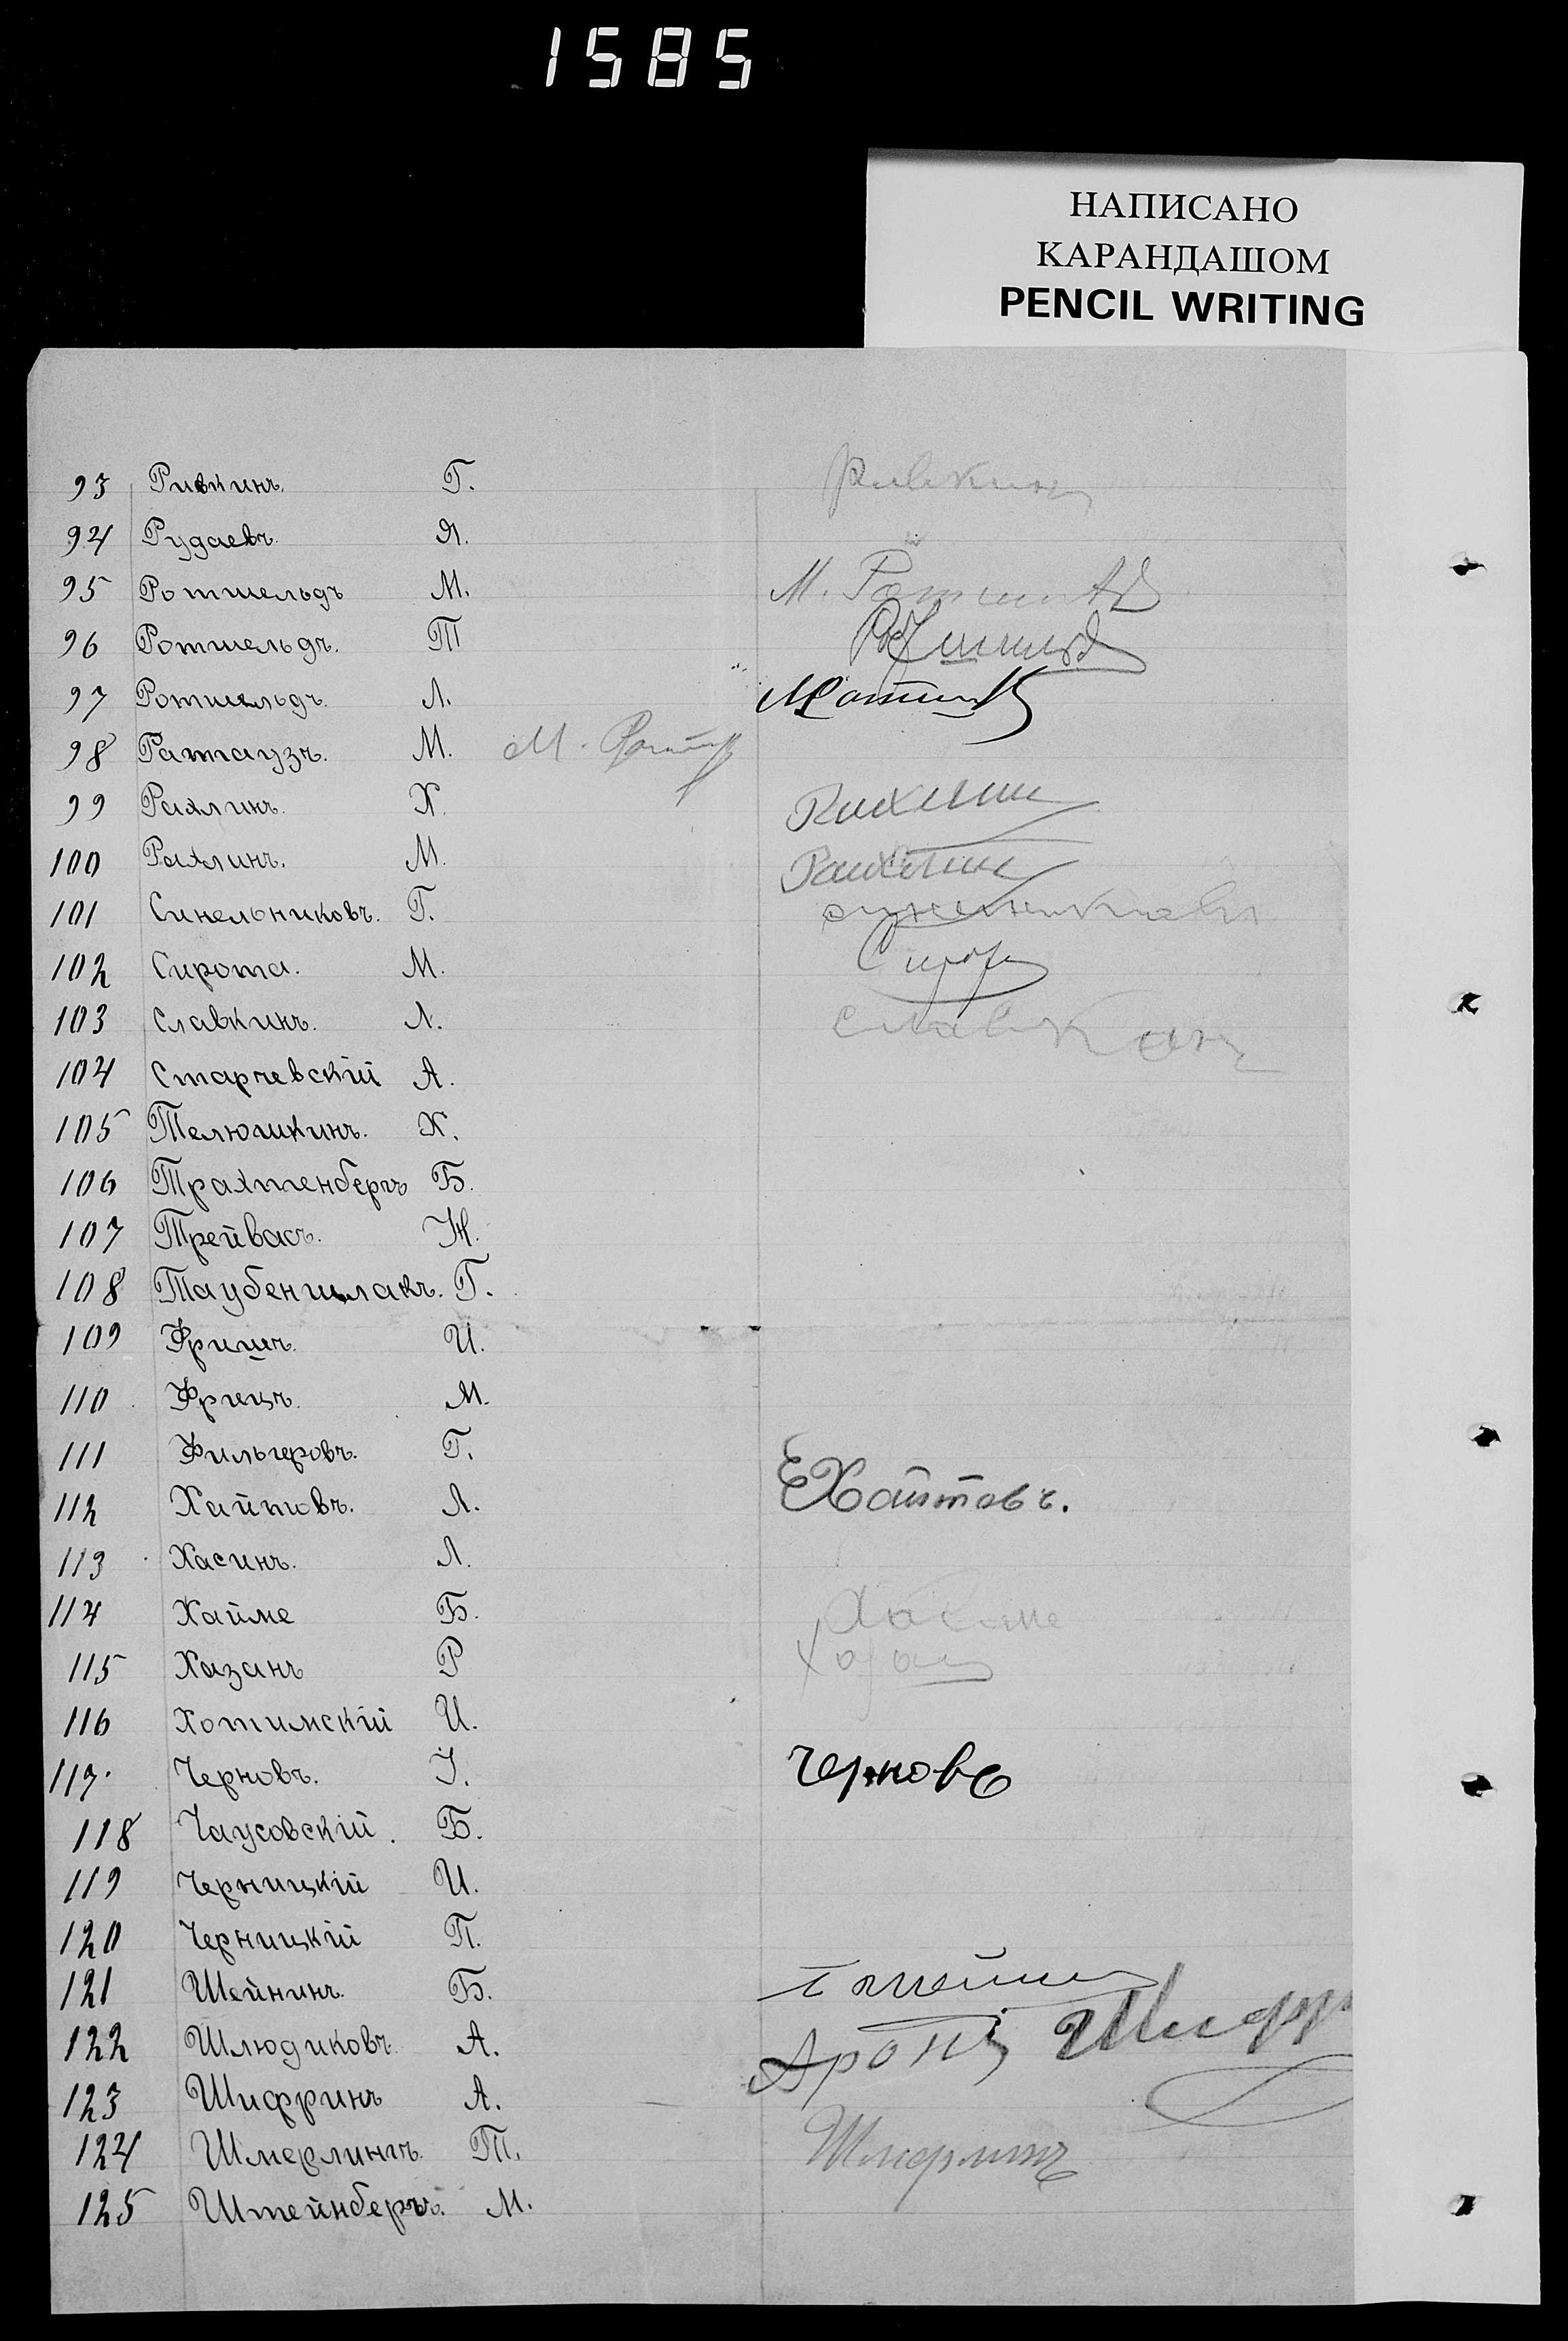 1585
НАПИСАНО
КАРАНДАШОМ
PENCIL WRITING
93 Ривкинъ. Г. Ривкинъ
94 Рудаевъ. Я.
95 Ротшельдъ М. М.
96 Ротшельдъ. Т
97 Ротшельдъ. Л.
98 Ратаузъ. М. М.
99 Рахлинъ. Х.
100 Рахлинъ. М.
101 Синельниковъ. Г.
102 Сирота. М. Сирота
103 Славкинъ. Л. Славкинъ
104 Старчевскій А.
105 Телюшкинъ. Х.
106 Трахтенбергъ Б.
107 Трейвасъ. Ж.
108 Таубеншлакъ. Г.
109 Фришъ. И.
110 Фрицъ. М.
111 Фильцеровъ. Г.
112 Хайтовъ. Л. Е Хайтовъ.
113 Хасинъ. Л.
114 Хайме Б. Хайме
115 Хазанъ Р
116 Хотимскій И.
117. Черновъ. І. Черновъ
118 Чаусовскій. Б.
119 Черницкій И.
120 Черницкій П.
121 Шейнинъ. Б.
122 Шлюдиковъ. А.
Аронъ Шифр
123 Шифринъ А.
124 Шмерлингъ. Т. Шмерлингъ
125 Штейнбергъ. М.